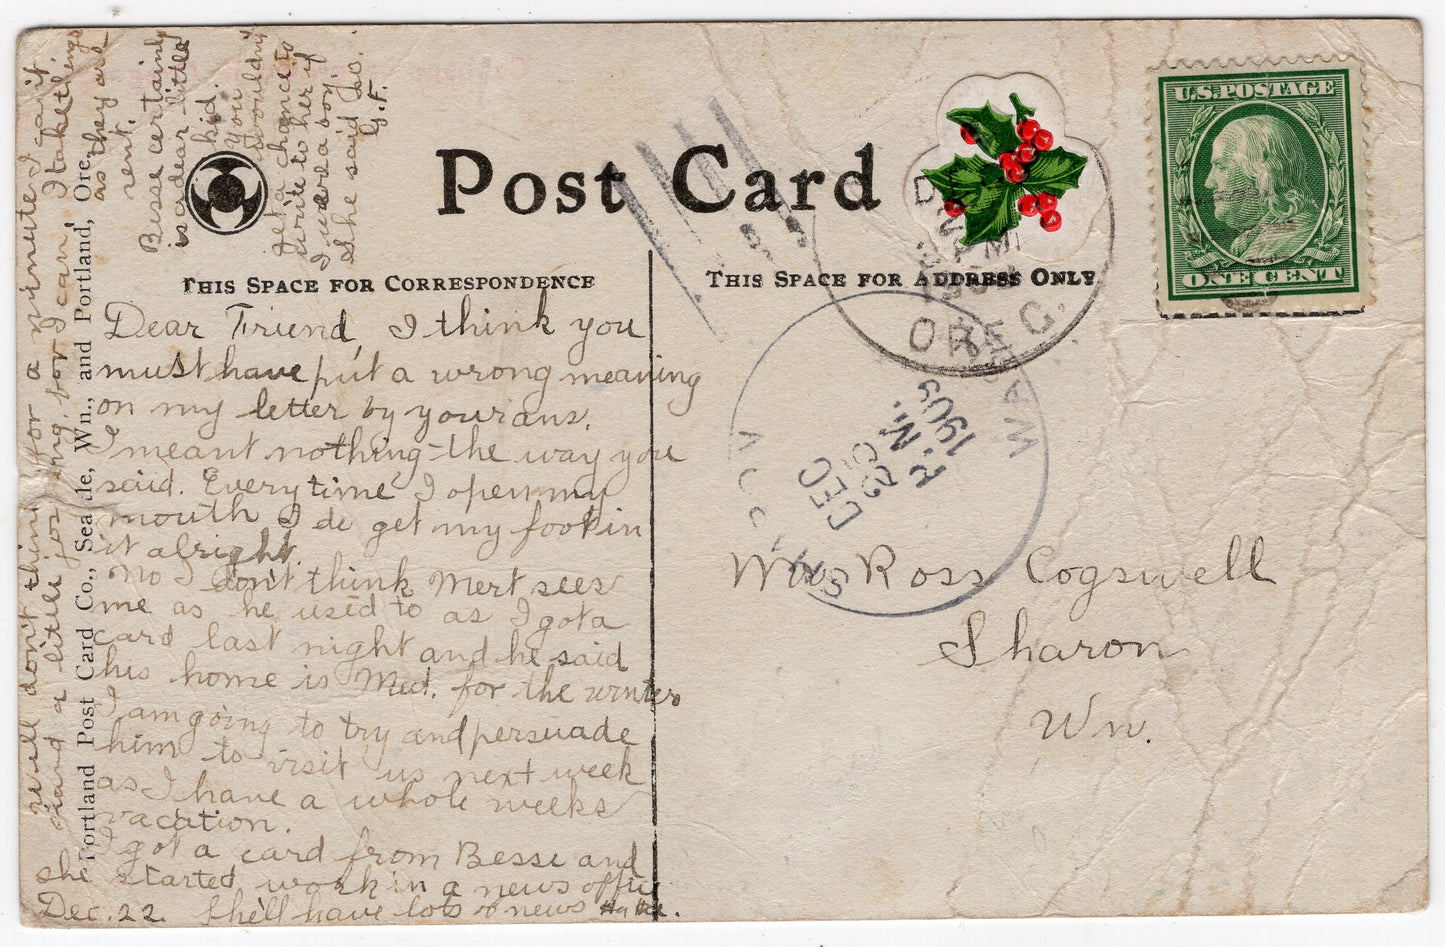 Post Card
THIS SPACE FOR CORRESPONDENCE
THIS SPACE FOR ADDRESS ONLY
U.S. POSTAGE
ONE CENT
OREG.
WASH
DEC
23
N.
1909
R.
Mr Ross Cogswell
Sharon
Wn.
Dear Friend, I think you
must have put a wrong meaning
on my letter by your ans.
I meant nothing the way you
said. Everytime I open my
mouth I do get my foot in
it alright.
No I don't think Mert sees
me as he used to as I got a
card last night and he said
his home is Med. for the winter
I am going to try and persuade
him to visit us next week
as I have a whole weeks
vacation.
I got a card from Besse and
she started work in a news office
Dec. 22. She'll have lots of news
well don't think for a minute I can't
stand a little joshing, for I can, I take things
as they are
sent.
Besse certainly
is a dear little
kid.
You
wouldn't
get a chance to
write to her if
I were a boy.
She said so.
G.F.
Portland Post Card Co., Seattle, Wn., and Portland, Ore.